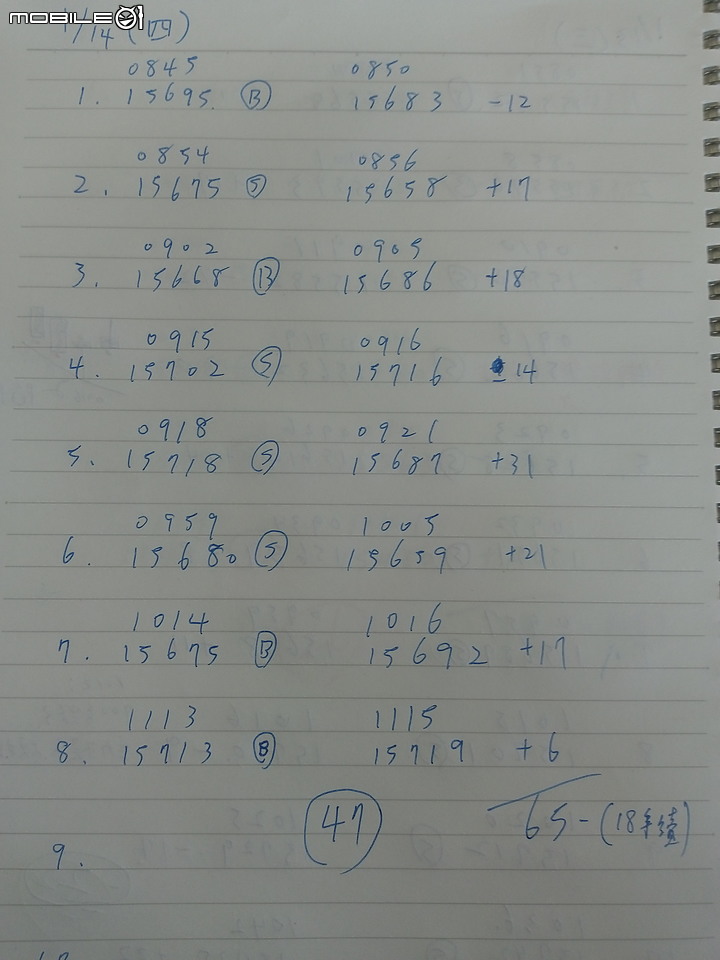 MOBILE01
1/14 (四)
0845 0850
1. 15695. B 15683 -12
0854 0856
2. 15675 S 15658 +17
0902 0905
3. 15668 B 15686 +18
0915 0916
4. 15702 S 15716 - 14
0918 0921
5. 15718 S 15687 +31
0959 1005
6. 15680 S 15659 +21
1014 1016
7. 15675 B 15692 +17
1113 1115
8. 15713 B 15719 +6
47 65-(18手續)
9.